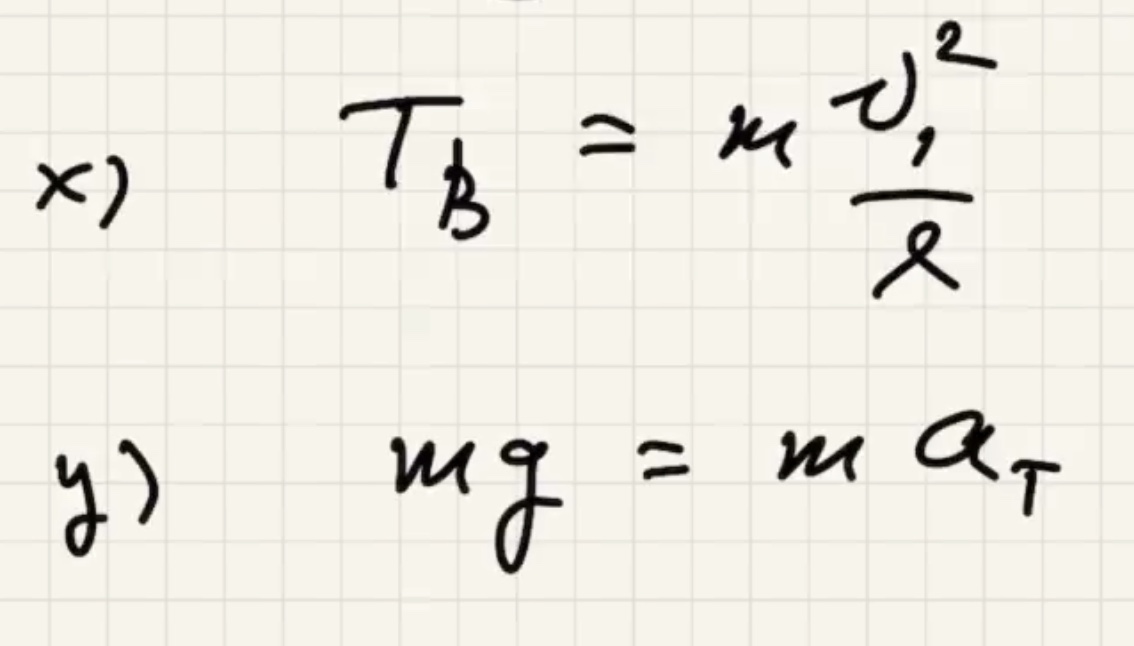 x) T_B = m v_1^2 / l
y) mg = m a_T